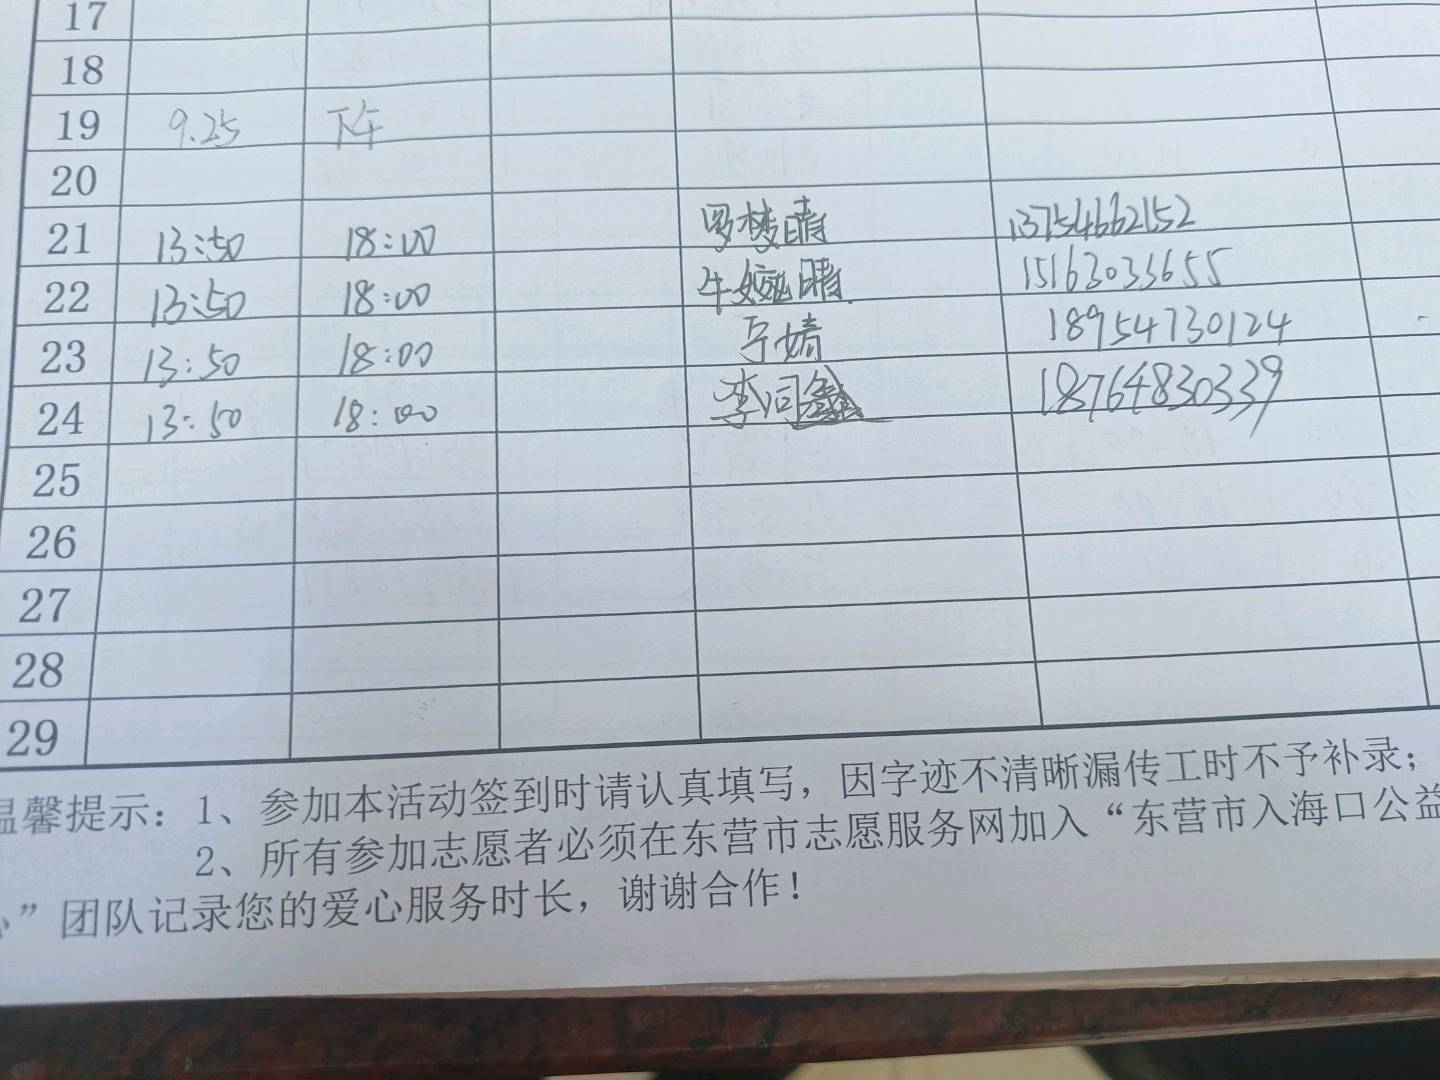 17
18
19 9.25 下午
20
21 13:50 18:00 罗梦晴 13754662152
22 13:50 18:00 牛婉晴 15163033655
23 13:50 18:00 于婧 18954730124
24 13:50 18:00 李同鑫 18764830339
25
26
27
28
29
温馨提示：1、参加本活动签到时请认真填写，因字迹不清晰漏传工时不予补录；
2、所有参加志愿者必须在东营市志愿服务网加入“东营市入海口公益
心”团队记录您的爱心服务时长，谢谢合作！